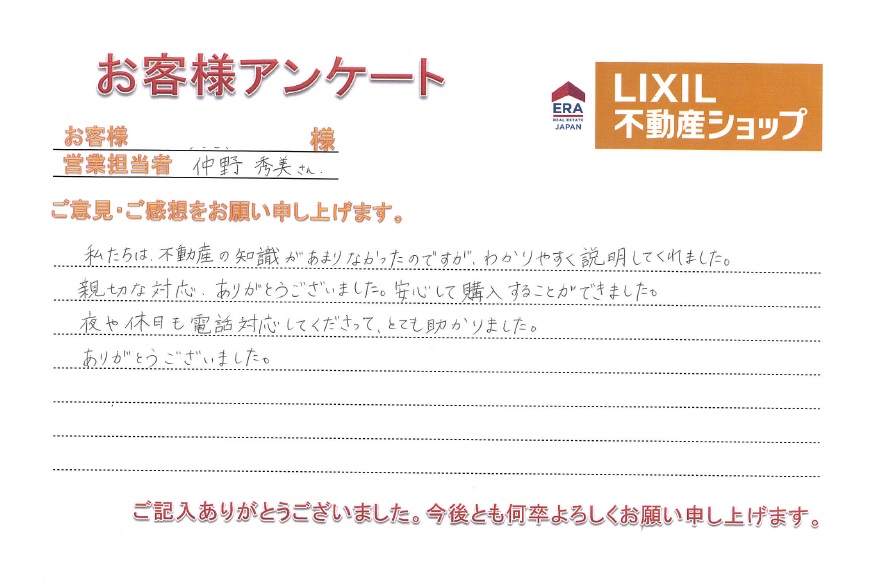 お客様アンケート
ERA
REAL ESTATE
JAPAN
LIXIL
不動産ショップ
お客様 様
営業担当者 仲野 秀美さん.
ご意見・ご感想をお願い申し上げます。
私たちは、不動産の知識があまりなかったのですが、わかりやすく説明してくれました。
親切な対応、ありがとうございました。安心して購入することができました。
夜や休日も電話対応してくださって、とても助かりました。
ありがとうございました。
ご記入ありがとうございました。今後とも何卒よろしくお願い申し上げます。